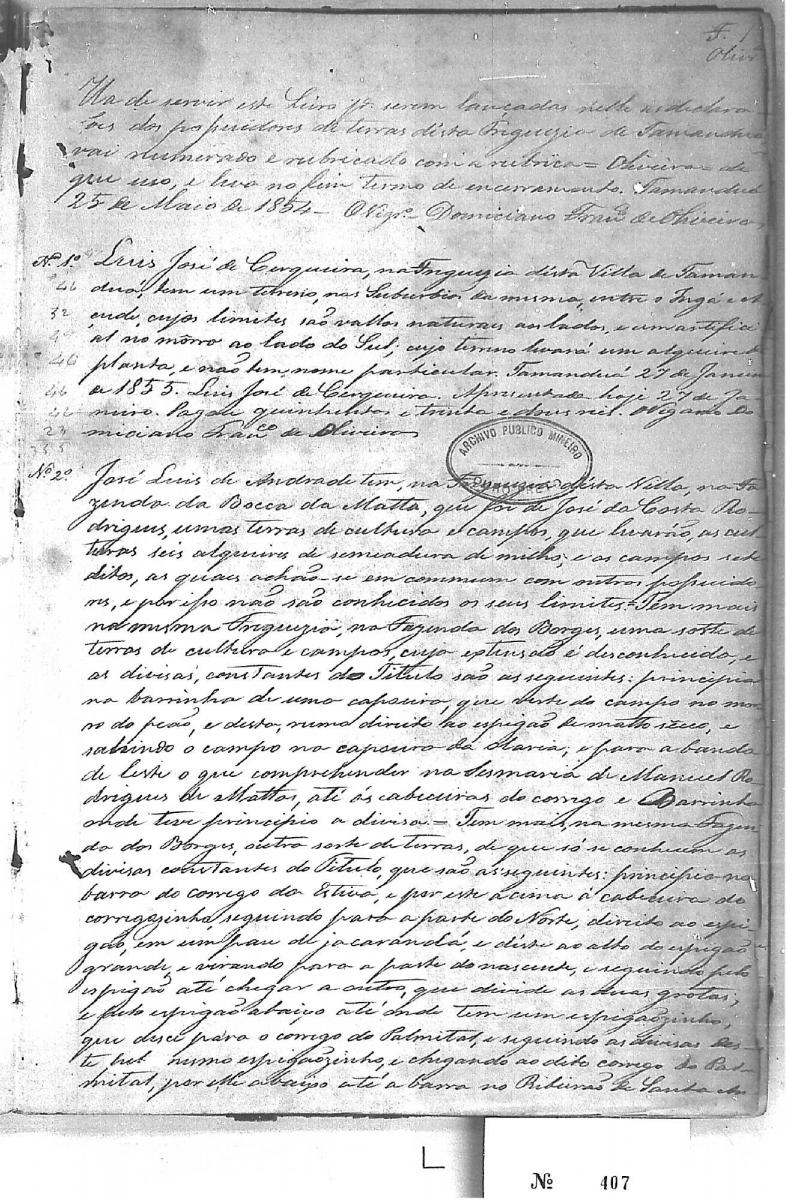 F. 1
Olivrª
Ha de servir este Livro pª. serem lançadas nelle as declara
ções dos possuidores de terras d'esta Freguezia de Tamanduá
vai numerado e rubricado com a rubrica = Oliveira = de
que uso, e leva no fim termo de encerramento. Tamanduá
25 de Maio de 1854 - O Vigrº. Domiciano Franco de Oliveira
Nº. 1º. Luis José de Cerqueira, na Freguezia d'esta Villa de Taman-
duá, tem um terreno, nos Suburbios da mesma, entre o Ingá e
cujos limites são vallos naturaes aos lados, e um artifici
al no morro ao lado do Sul, cujo terreno levará um alqueire de
planta, e não tem nome particular. Tamanduá 27 de Janeiro
de 1855. Luis José de Cerqueira. Apresentada hoje 27 de Ja-
neiro. Pagou quinhentos e trinta e dous reis. O Vigario Do
miciano Franco de Oliveira
46
32
46
46
46
23
335
ARCHIVO PUBLICO MINEIRO
OURO PRETO
Nº 2º. José Luis de Andrade tem, na Freguezia d'esta Villa, na Fa-
zenda da Bocca da Matta, que foi de José da Costa Ro-
drigues, umas terras de cultura e campos, que levarão, as cul
turas seis alqueires de semeadura de milho, e os campos sete
ditos, as quaes achão-se em commum com outros possuido
res, e por isso não são conhecidos os seus limites. = Tem mais
na mesma Freguezia, na Fazenda dos Borges, uma sorte de
terras de cultura e campos, cuja extensão é desconhecida, e
as divisas, constantes do Titulo são as seguintes: principia
na barrinha de uma capoeira, que verte do campo no mor-
ro do peão, e desta, rumo direito ao espigão de matto secco, e
sahindo o campo na capoeira da Maria, e para a banda
de leste o que comprehender na Sesmaria de Manuel Ro
drigues de Mattos, até ás cabeceiras do corrego e Barrinha
onde teve principio a divisa. = Tem mais, na mesma Fazen
da dos Borges, outra sorte de terras, de que só se conhecem as
divisas constantes do Titulo, que são as seguintes: principia na
barra do corrego da Estiva, e por este acima á cabeceira do
corregozinho, seguindo para a parte do Norte, direito ao espi-
gão, em um pau de jacarandá, e d'este ao alto do espigão
grande, e virando para a parte do nascente, e seguindo pelo
espigão até chegar a outro, que divide as duas grotas,
e pelo espigão abaixo até onde tem um espigãozinho,
que desce para o corrego do Palmital, e seguindo as divisas des-
te, pelo mesmo espigãozinho, e chegando ao dito corrego do Pal-
mital, por elle abaixo até a barra no Ribeirão de Santa
Nº 407